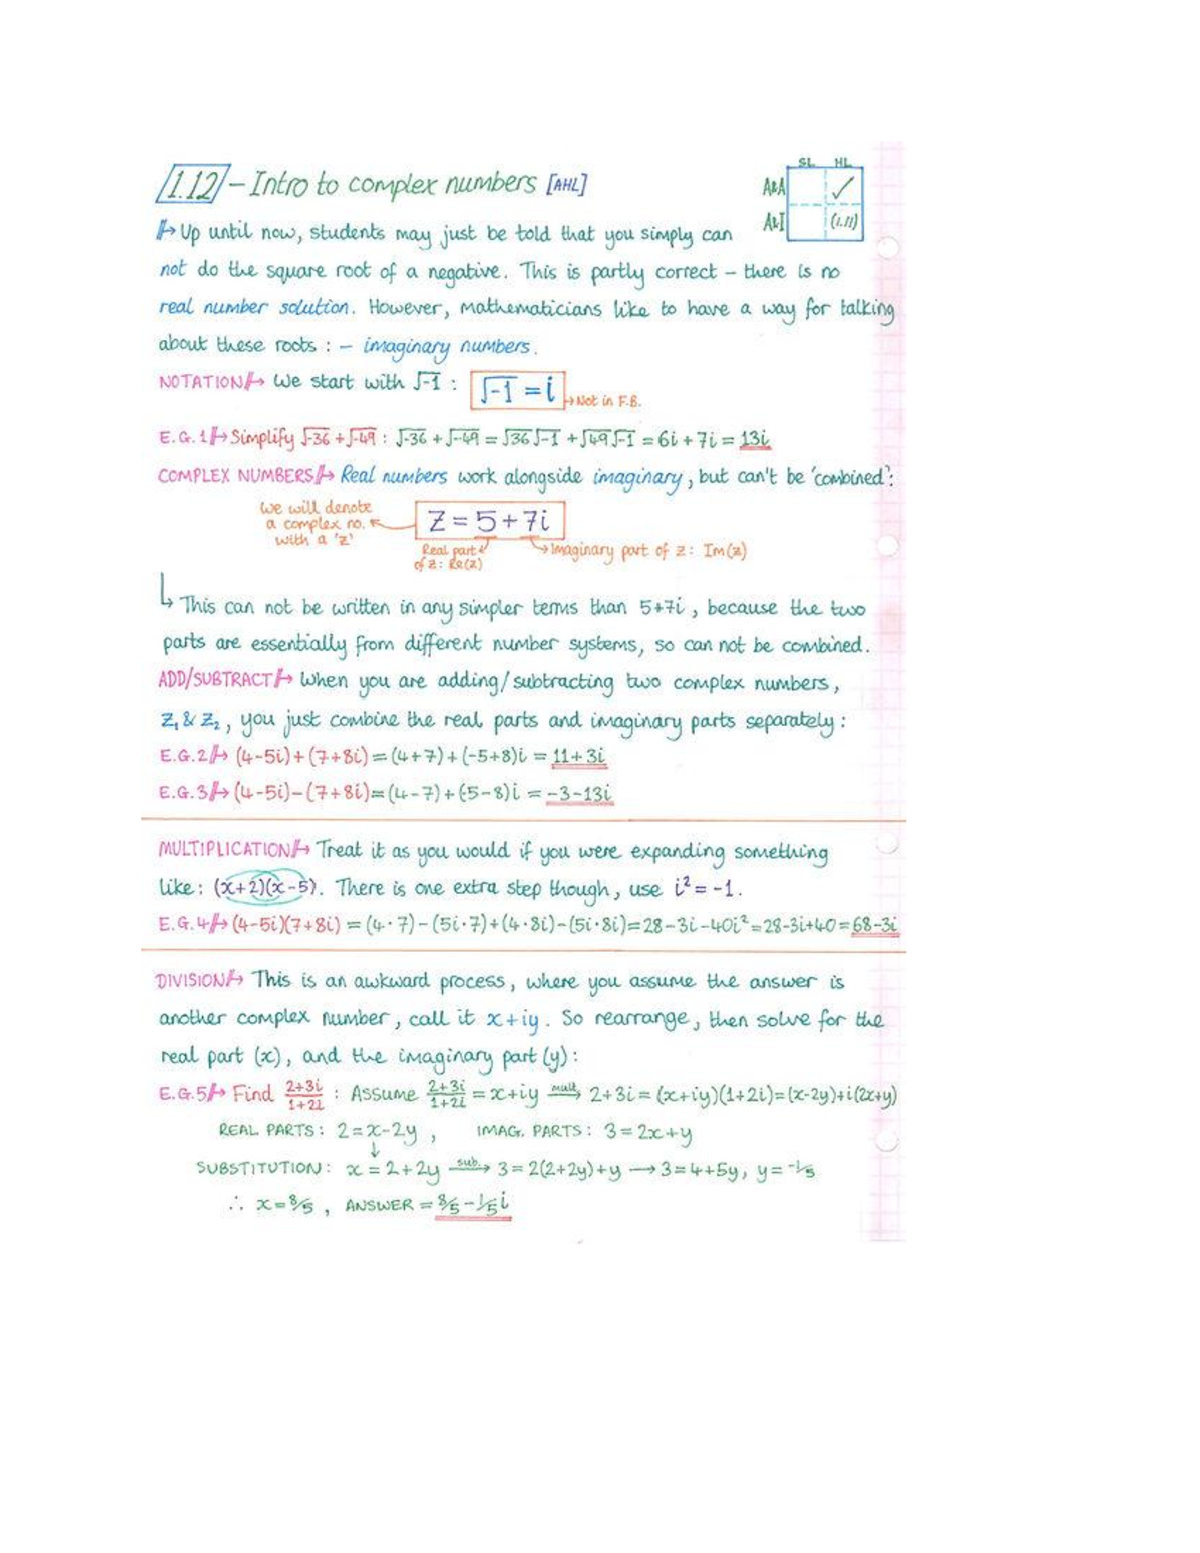 1.12 – Intro to complex numbers [AHL]
SL HL
A&A ✓
A&I (1.11)
↦ Up until now, students may just be told that you simply can
not do the square root of a negative. This is partly correct – there is no
real number solution. However, mathematicians like to have a way for talking
about these roots : – imaginary numbers.
NOTATION ↦ We start with √-1 : √-1 = i → Not in F.B.
E.G.1 ↦ Simplify √-36 + √-49 : √-36 + √-49 = √36 √-1 + √49 √-1 = 6i + 7i = 13i
COMPLEX NUMBERS ↦ Real numbers work alongside imaginary, but can't be 'combined':
We will denote
a complex no.
with a 'z'
Z = 5 + 7i
Real part
of z: Re(z)
→ Imaginary part of z: Im(z)
↳ This can not be written in any simpler terms than 5+7i, because the two
parts are essentially from different number systems, so can not be combined.
ADD/SUBTRACT ↦ When you are adding/subtracting two complex numbers,
Z₁ & Z₂, you just combine the real parts and imaginary parts separately :
E.G.2 ↦ (4-5i)+(7+8i) = (4+7)+(-5+8)i = 11+3i
E.G.3 ↦ (4-5i)-(7+8i) = (4-7)+(-5-8)i = -3-13i
MULTIPLICATION ↦ Treat it as you would if you were expanding something
like: (x+2)(x-5). There is one extra step though, use i² = -1.
E.G.4 ↦ (4-5i)(7+8i) = (4·7)-(5i·7)+(4·8i)-(5i·8i)=28-3i-40i²=28-3i+40=68-3i
DIVISION ↦ This is an awkward process, where you assume the answer is
another complex number, call it x+iy. So rearrange, then solve for the
real part (x), and the imaginary part (y):
E.G.5 ↦ Find 2+3i/1+2i : Assume 2+3i/1+2i = x+iy mult→ 2+3i = (x+iy)(1+2i)=(x-2y)+i(2x+y)
REAL PARTS: 2=x-2y , IMAG. PARTS: 3=2x+y
↓
SUBSTITUTION: x = 2+2y sub.→ 3=2(2+2y)+y → 3=4+5y, y=-1/5
∴ x=8/5 , ANSWER = 8/5 - 1/5 i